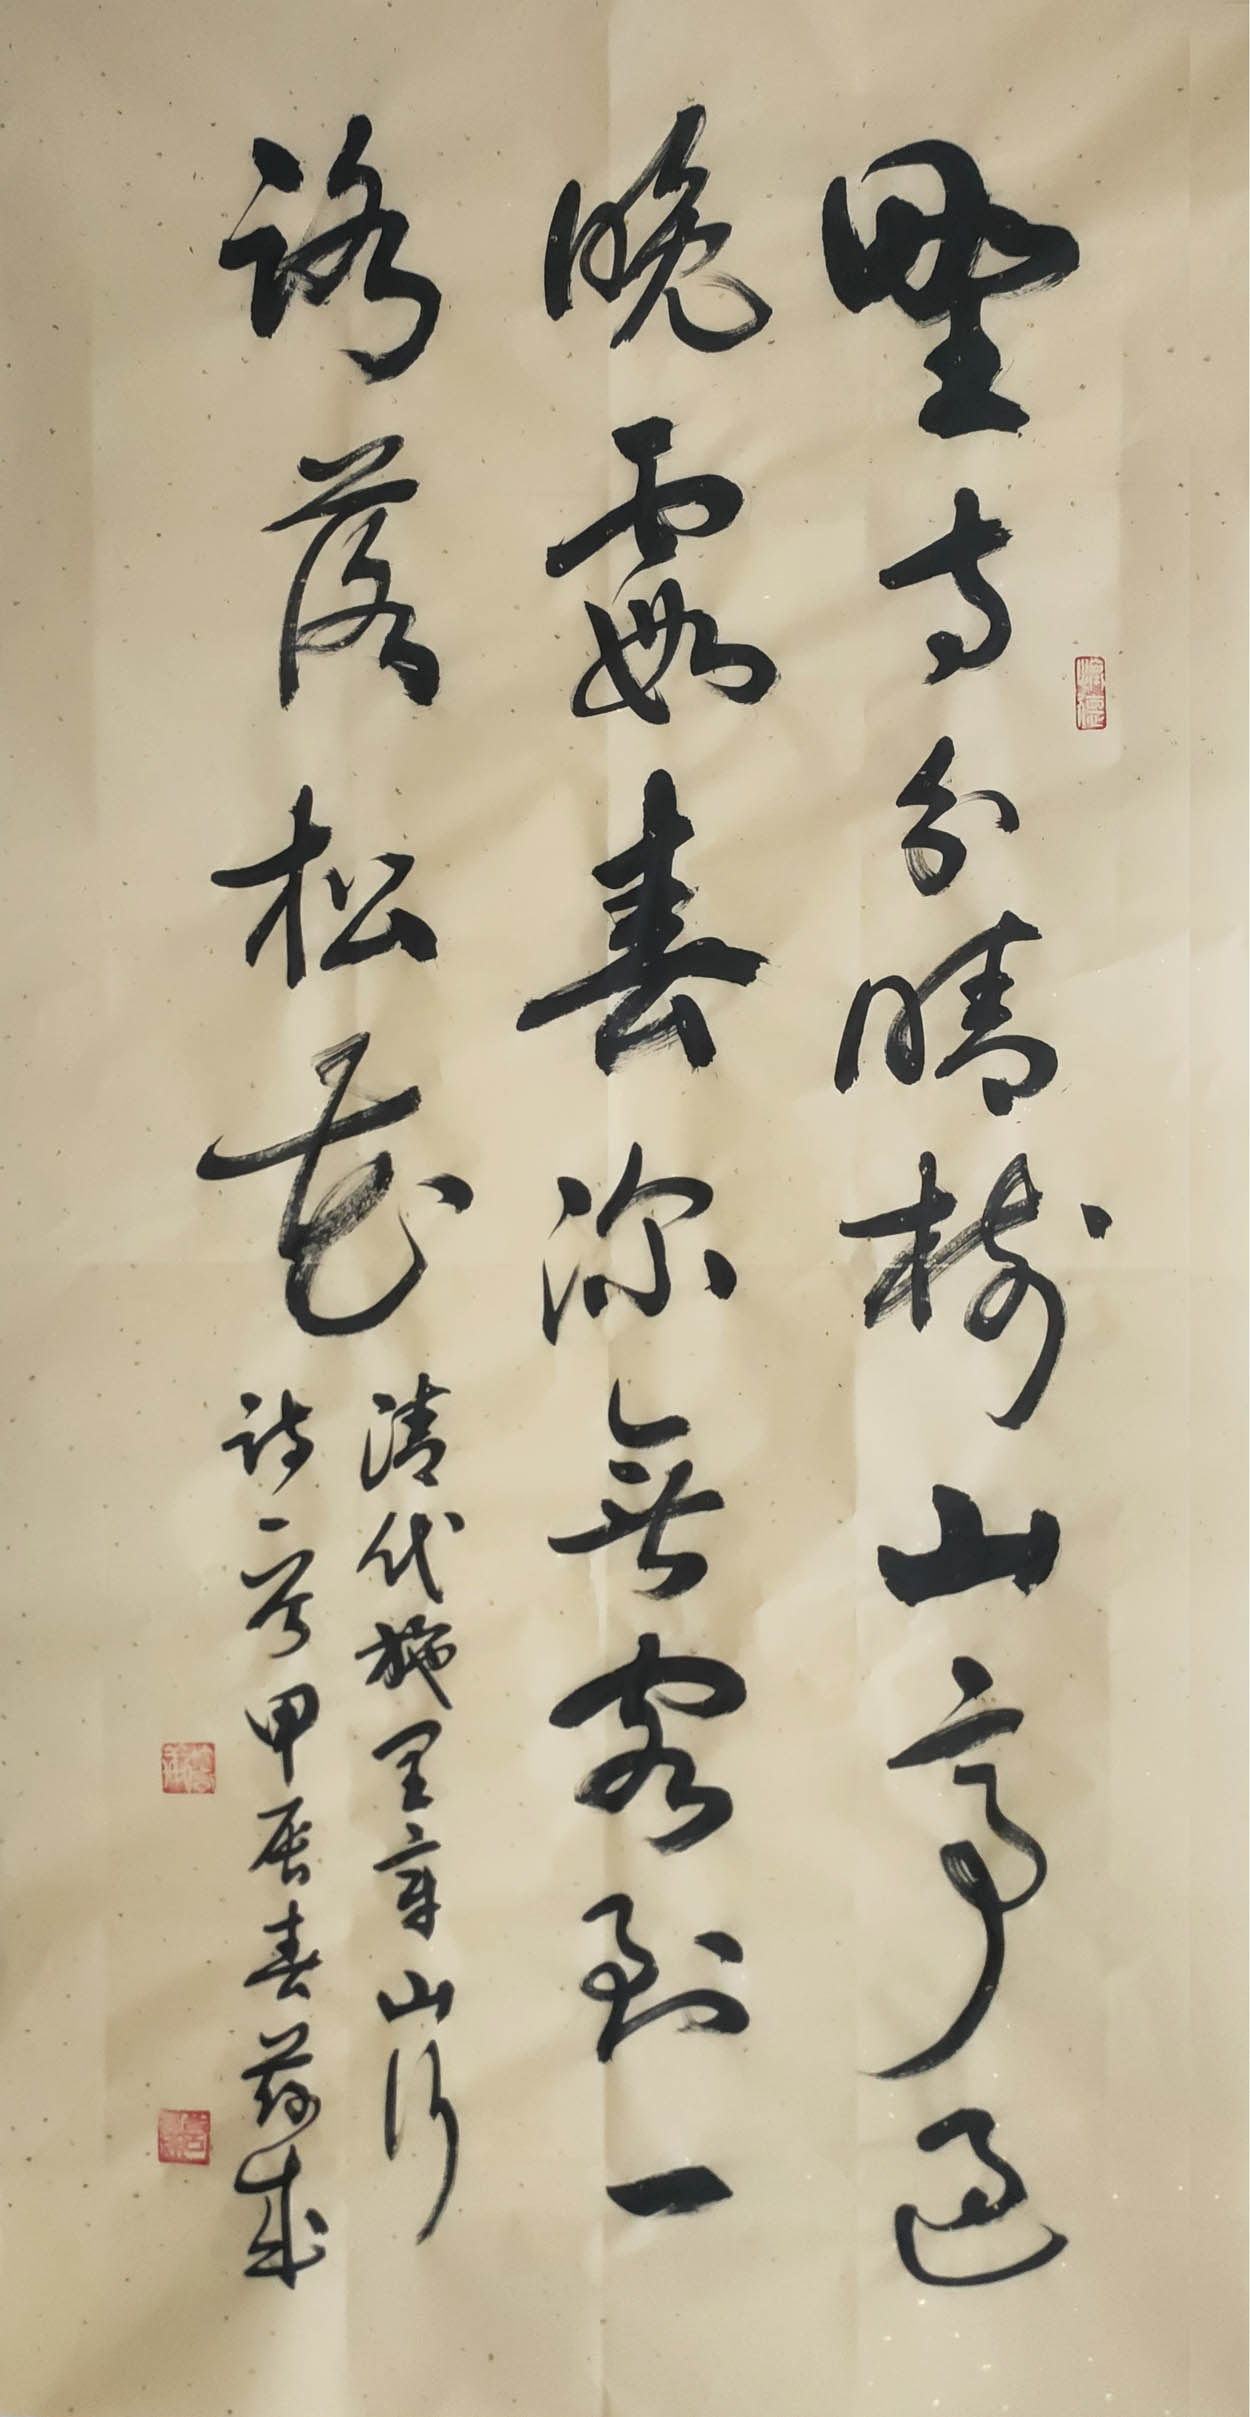 野寺分晴树山亭过
晚霞春深无客到一
路落松花
清代施闰章山行
诗一首甲辰春苏成